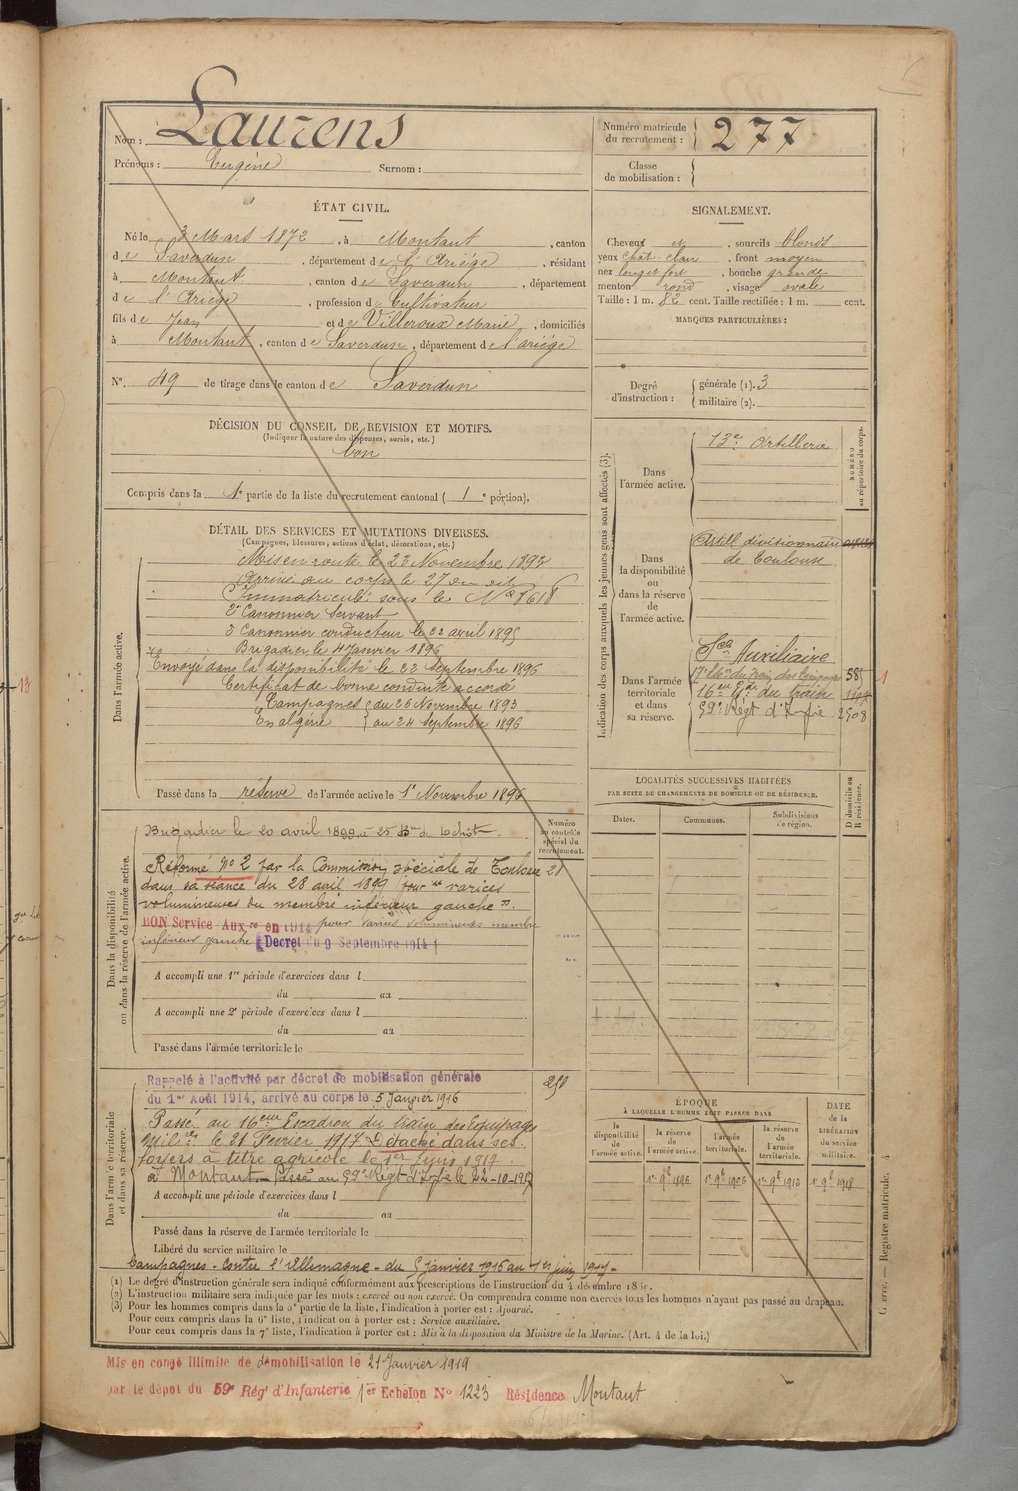 Nom : Laurens
Prénoms : Eugène Surnom :
Numéro matricule du recrutement : 277
Classe de mobilisation :
ÉTAT CIVIL.
Né le 3 Mars 1872, à Montaut, canton
de Saverdun, département de l'Ariège, résidant
à Montaut, canton de Saverdun, département
de l'Ariège, profession de Cultivateur
fils de Jean et de Villeroux Marie, domiciliés
à Montaut, canton de Saverdun, département de l'ariège
N° 49 de tirage dans le canton de Saverdun
DÉCISION DU CONSEIL DE REVISION ET MOTIFS.
(Indiquer la nature des dispenses, sursis, etc.)
bon
Compris dans la 1e partie de la liste du recrutement cantonal ( 1 e portion).
SIGNALEMENT.
Cheveux et, sourcils blonds
yeux chât. clair, front moyen
nez long et fort, bouche grande
menton rond, visage ovale
Taille : 1 m. 82 cent. Taille rectifiée : 1 m. cent.
MARQUES PARTICULIÈRES :
Degré d'instruction : générale (1). 3
militaire (2).
DÉTAIL DES SERVICES ET MUTATIONS DIVERSES.
(Campagnes, blessures, actions d'éclat, décorations, etc.)
Dans l'armée active.
Mis en route le 23 Novembre 1893
Arrivé au corps le 27 du dit
Immatriculé sous le N° 8618
2e Canonnier servant
2 Canonnier conducteur le 22 avril 1895
Brigadier le 4 Janvier 1896
Envoyé dans la disponibilité le 22 Septembre 1896
Certificat de bonne conduite accordé
Campagnes du 26 Novembre 1893
En algérie au 24 Septembre 1896
Passé dans la réserve de l'armée active le 1er Novembre 1896
Indication des corps auxquels les jeunes gens sont affectés (3).
NUMÉRO au répertoire du corps.
Dans l'armée active.
13e Artillerie
Dans la disponibilité ou dans la réserve de l'armée active.
Artill divisionnaire
de Toulouse
Dans l'armée territoriale et dans sa réserve.
Sce Auxiliaire
585
16eme Edon du train
59e Régt d'Infie 2508
1
LOCALITÉS SUCCESSIVES HABITÉES
PAR SUITE DE CHANGEMENTS DE DOMICILE OU DE RÉSIDENCE.
Dates. Communes. Subdivisions de région. D domicile ou R résidence.
Numéro au contrôle spécial du recrutement.
Dans la disponibilité ou dans la réserve de l'armée active.
Brigadier le 20 avril 1899
Réformé N° 2 par la Commission spéciale de Toulouse
dans sa séance du 28 avril 1899 pour "varices
volumineuses du membre inférieur gauche".
BON Service Auxre en 1914 pour varices volumineuses membre
inférieur gauche (Decret du 9 Septembre 1914)
A accompli une 1re période d'exercices dans l
du au
A accompli une 2e période d'exercices dans l
du au
Passé dans l'armée territoriale le
Dans l'armée territoriale et dans sa réserve.
Rappelé à l'activité par décret de mobilisation générale
du 1er Août 1914, arrivé au corps le 5 Janvier 1916
250
Passé au 16eme Escadron du train des Equipages
Milres le 21 Fevrier 1917 Détaché dans ses
foyers à titre agricole le 1er Juin 1917
à Montaut - Passé au 59e Régt d'Infie le 22-10-1917
A accompli une période d'exercices dans l
du au
Passé dans la réserve de l'armée territoriale le
Libéré du service militaire le
Campagnes - contre l'allemagne - du 5 janvier 1916 au 1er juin 1917 -
ÉPOQUE
À LAQUELLE L'HOMME DOIT PASSER DANS
la disponibilité de l'armée active. la réserve de l'armée active. l'armée territoriale. la réserve de l'armée territoriale. DATE de la LIBÉRATION du service militaire.
1er 9bre 1896 1er 9bre 1906 1er 9bre 1912 1er 9bre 1918
(1) Le degré d'instruction générale sera indiqué conformément aux prescriptions de l'instruction du 4 décembre
(2) L'instruction militaire sera indiquée par les mots : exercé ou non exercé. On comprendra comme non exercés tous les hommes n'ayant pas passé au drapeau.
(3) Pour les hommes compris dans la 5e partie de la liste, l'indication à porter est : Ajourné.
Pour ceux compris dans la 6e liste, l'indication à porter est : Service auxiliaire.
Pour ceux compris dans la 7e liste, l'indication à porter est : Mis à la disposition du Ministre de la Marine. (Art. 4 de la loi.)
Guerre. — Registre matricule. 4.
Mis en congé illimité de démobilisation le 21 Janvier 1919
par le dépot du 59e Régt d'Infanterie 1er Echelon N° 1223 Résidence Montaut